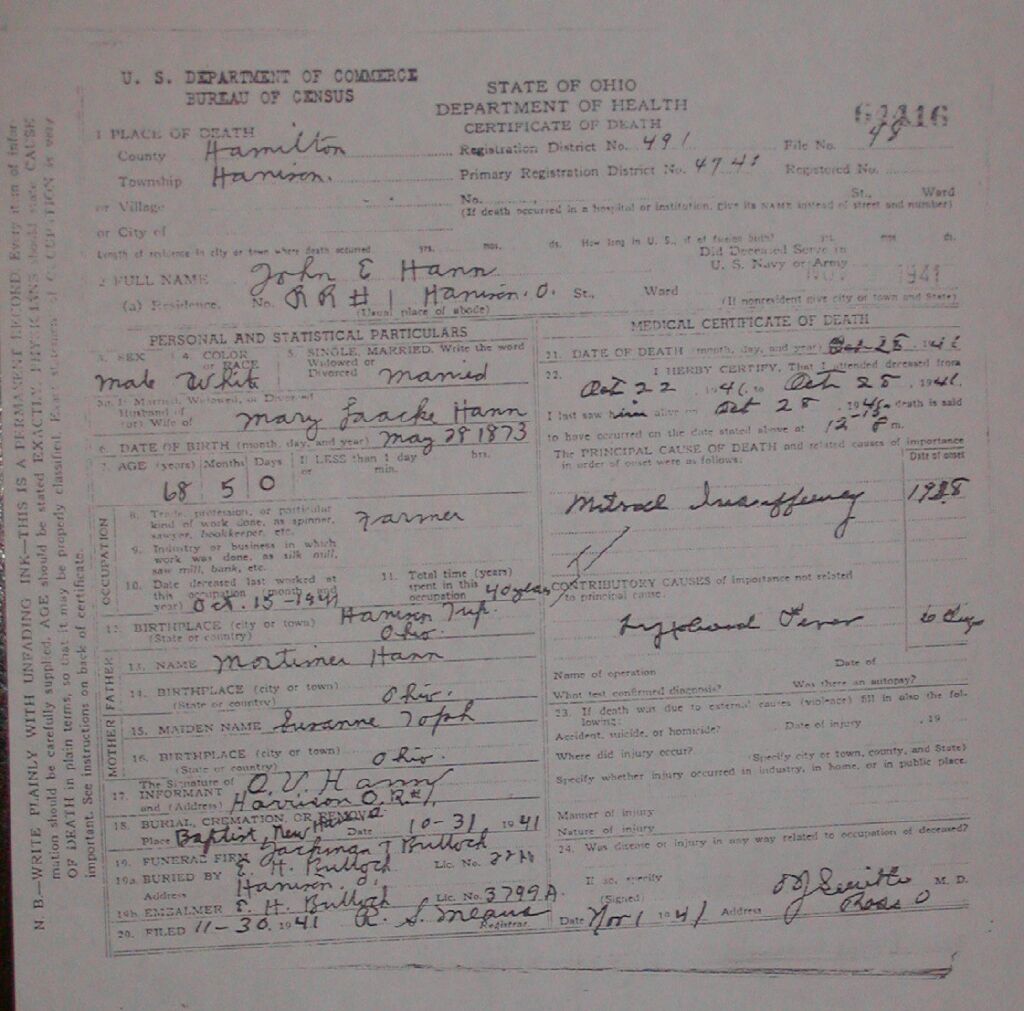 U. S. DEPARTMENT OF COMMERCE
BUREAU OF CENSUS
STATE OF OHIO
DEPARTMENT OF HEALTH
CERTIFICATE OF DEATH
1 PLACE OF DEATH
County Hamilton
Registration District No. 491 File No. 98
Township Harrison.
Primary Registration District No. 4743 Registered No.
or Village
No. St., Ward
(If death occurred in a hospital or institution, give its NAME instead of street and number)
or City of
Length of residence in city or town where death occurred yrs. mos. ds. How long in U. S., if of foreign birth? yrs. mos. ds.
2 FULL NAME John E Hann
Did Deceased Serve in
U. S. Navy or Army
1941
(a) Residence. No. RR # 1 Harrison. O. St., Ward
(Usual place of abode)
(If nonresident give city or town and State)
PERSONAL AND STATISTICAL PARTICULARS
3. SEX 4. COLOR or RACE 5. SINGLE, MARRIED, Write the word
Widowed or
Divorced
Male White Married
5a. If Married, Widowed, or Divorced
Husband of
(or) Wife of Mary Hann
6. DATE OF BIRTH (month, day, and year) May 28 1873
7. AGE (years) Months Days If LESS than 1 day hrs.
or min.
68 5 0
OCCUPATION
8. Trade, profession, or particular
kind of work done, as spinner,
sawyer, bookkeeper, etc. Farmer
9. Industry or business in which
work was done, as silk mill,
saw mill, bank, etc.
10. Date deceased last worked at
this occupation (month and
year) Oct. 15-1941
11. Total time (years)
spent in this
occupation 40 years
12. BIRTHPLACE (city or town) Harrison Twp.
(State or country) Ohio.
FATHER
13. NAME Mortimer Hann
14. BIRTHPLACE (city or town)
(State or country) Ohio.
MOTHER
15. MAIDEN NAME Susanne Toph
16. BIRTHPLACE (city or town)
(State or country) Ohio.
17. The Signature of
INFORMANT O. V. Hann
and (Address) Harrison O. R#1
18. BURIAL, CREMATION, OR REMOVAL
Place Baptist, New Haven Date 10-31 1941
19. FUNERAL FIRM & Bulloch
19a. BURIED BY E. H. Bulloch Lic. No.
Address Harrison. O.
19b. EMBALMER E. H. Bulloch Lic. No. 3799A
20. FILED 11-30. 1941 R. S.
Registrar.
MEDICAL CERTIFICATE OF DEATH
21. DATE OF DEATH (month, day, and year) Oct 28. 1941
22. I HERBY CERTIFY, That I attended deceased from
Oct 22, 1941, to Oct 28, 1941.
I last saw him alive on Oct 28, 1941, death is said
to have occurred on the date stated above at 12 m.
The PRINCIPAL CAUSE OF DEATH and related causes of importance
in order of onset were as follows:
Date of onset
Mitral Insufficiency
CONTRIBUTORY CAUSES of importance not related
to principal cause.
Typhoid Fever 6 Days
Name of operation Date of
What test confirmed diagnosis? Was there an autopsy?
23. If death was due to external causes (violence) fill in also the fol-
lowing:
Accident, suicide, or homicide? Date of injury , 19
Where did injury occur? (Specify city or town, county, and State)
Specify whether injury occurred in industry, in home, or in public place.
Manner of injury
Nature of injury
24. Was disease or injury in any way related to occupation of deceased?
If so, specify
(Signed) M. D.
Date Nov 1 1941 Address Ross O
N. B.—WRITE PLAINLY WITH UNFADING INK—THIS IS A PERMANENT RECORD Every item of infor
mation should be carefully supplied. AGE should be stated EXACTLY. PHYSICIANS should state CAUSE
OF DEATH in plain terms, so that it may be properly classified. Exact statement of OCCUPATION is very
important. See instructions on back of certificate.